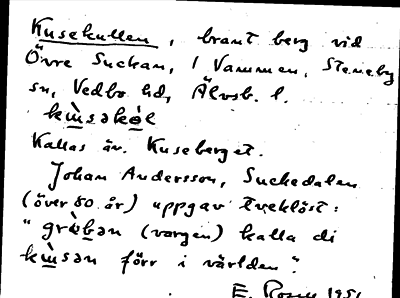 Kusekullen, brant berg vid
Övre Suckan, i Vammen, Steneby
sn, Vedbo hd, Älvsb. l.
Kallas äv. Kuseberget.
Johan Andersson, Suckedalen
(över 80 år) uppgav tveklöst:
(vargen) kalla di
förr i världen".
E. 1951